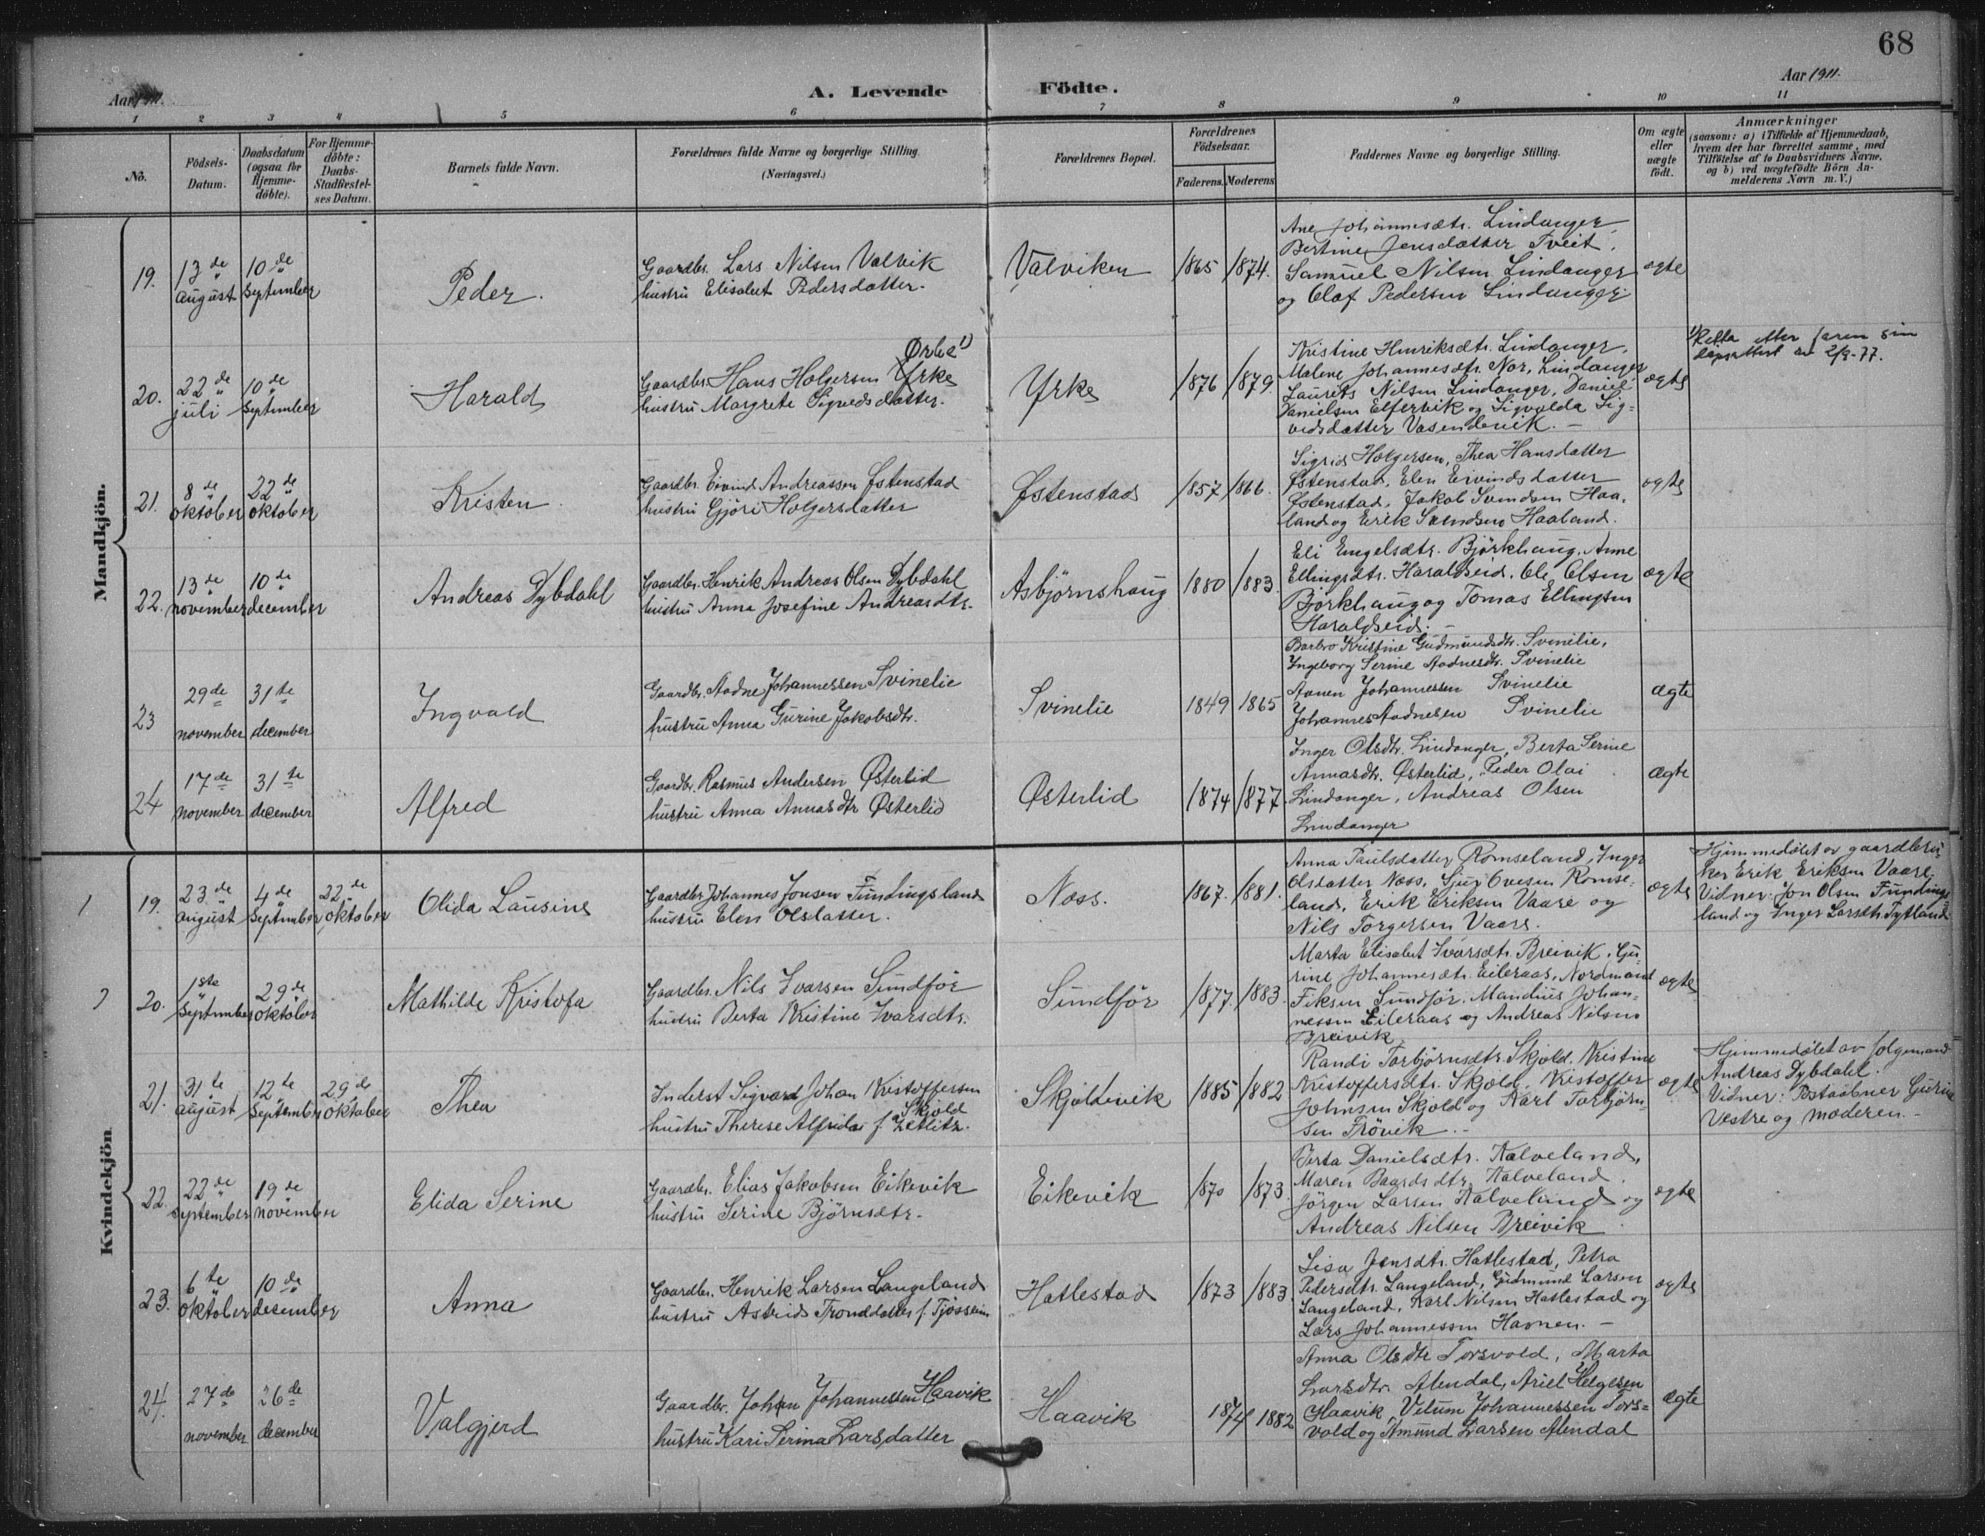 68
Aar 1911.
A. Levende Födte.
Aar 1911.
1 2 3 4 5 6 7 8 9 10 11
No.
Födsels-Datum.
Daabsdatum (ogsaa for Hjemme-döbte).
For Hjemme-döbte: Daabs-Stadfæstel-ses Datum.
Barnets fulde Navn.
Forældrenes fulde Navne og borgerlige Stilling.
(Næringsvei.)
Forældrenes Bopæl.
Forældrenes Födselsaar.
Faderens. Moderens.
Faddernes Navne og borgerlige Stilling.
Om ægte eller uægte födt.
Anmærkninger
(saasom: a) i Tilfælde af Hjemmedaab,
hvem der har forrettet samme, med
Tilföielse af to Daabsvidners Navne,
og b) ved uægtefödte Börn An-
melderens Navn m. V.)
Mandkjön.
19. 13de august 10de september
Peder.
Gaardbr. Lars Nilsen Valvik
hustru Elisabet Pedersdatter.
Valviken 1865 1874.
Ane Johannesdtr. Lindanger,
Bertine Jensdatter Tveit,
Samuel Nilsen Lindanger
og Olaf Pedersen Lindanger.
ægte
20. 22de juli 10de september
Harald
Ørke 1)
Gaardbr. Hans Holgersen Yrke
hustru Margrete Sigvedsdatter.
Yrke 1876 1879.
Kristine Henriksdtr. Lindanger,
Malene Johannesdtr. Nor, Lindanger
Laurits Nilsen Lindanger, Daniel
Danielsen Elfervik og Sigvalda Sig-
vedsdatter Vasendevik. —
ægte
1) Retta etter faren sin
dåpsattest av 2/9-77.
21. 8de oktober 22de oktober
Kristen
Gaardbr. Eivind Andreassen Østenstad
hustru Gjøri Holgersdatter
Østenstad 1857 1866.
Sigrid Holgersen, Thea Hansdatter
Østenstad, Elen Eivindsdatter
Østenstad, Jakob Svendsen Haa-
land og Erik Svendsen Haaland.
ægte
22. 13de november 10de december
Andreas Dybdahl
Gaardbr. Henrik Andreas Olsen Dybdahl
hustru Anna Josefine Andreasdtr.
Asbjörnshaug 1880 1883.
Eli Engelsdtr. Björkhaug, Anne
Ellingsdtr. Haraldseid, Ole Olsen
Björkhaug og Tomas Ellingsen
Haraldseid. —
ægte
23 29de november 31te december
Ingvald
Gaardbr. Aadne Johannessen Svinelie
hustru Anna Gurine Jakobsdtr.
Svinelie 1849 1865
Barbro Kristine Gudmundsdtr. Svinelie,
Ingeborg Serine Aadnesdtr. Svinelie
Johannessen Svinelie
Johannes Aadnesen Svinelie
ægte
24 17de november 31te december
Alfred
Gaardbr. Rasmus Andersen Østerlid
hustru Anna Annasdtr Østerlid
Østerlid 1874 1877
Inger Olsdtr. Lindanger, Berta Serine
Annasdtr. Østerlid, Peder Olai
Lindanger, Andreas Olsen
Lindanger
ægte
Kvindekjön.
1 19. 23de august 4de september 22de oktober
Olida Lausine
Gaardbr. Johannes Jonsen Fundingsland
hustru Elen Olsdatter.
Næss. 1867. 1881.
Anna Paulsdatter Romseland, Inger
Olsdatter Næss, Sjur Ovesen Romse-
land, Erik Eriksen Vaare og
Nils Torgersen Vaare.
ægte
Hjemmedøbt av gaardbru-
ker Erik Eriksen Vaare
Vidner: Jon Olsen Fundings-
land og Inger Larsdtr. Tytland
20. 1ste september 29de oktober
Mathilde Kristofa
Gaardbr. Nils Ivarsen Sundför
hustru Berta Kristine Ivarsdtr.
Sundför 1877. 1883.
Marta Elisabet Ivarsdtr. Breivik, Gu-
rine Johannesdtr. Eileraas, Nordmand
Sundför, Mandius Johan-
nessen Eileraas og Andreas Nilsen
Breivik.
ægte
21. 31te august 12te september 29de oktober
Thea
Inderst Sigvard Johan Kristoffersen
Skjold
hustru Therese Alfrida f. Zetlitz.
Skjoldevik 1885 1882
Randi Torbjörnsdtr. Skjold, Kristine
Kristoffersdtr. Skjold, Kristoffer
Johnsen Skjold og Karl Torbjörn-
sen Trövik. —
ægte
Hjemmedøbt av folgemand
Andreas Dybdahl.
Vidner: Postaabner Gurine
Vestre og moderen. —
22. 22de september 19de november
Elida Serine
Gaardbr. Elias Jakobsen Eikevik
hustru Serine Bjørnsdtr.
Eikevik 1870 1873.
Berta Danielsdtr. Kalveland,
Maren Baardsdtr. Kalveland,
Jörgen Larsen Kalveland og
Andreas Nilsen Breivik.
ægte
23. 6te oktober 10de desember
Anna
Gaardbr. Henrik Larsen Langeland
hustru Astrid Tronddatter f. Tjösseim
Hatlestad 1873 1883
Lisa Jensdtr. Hatlestad, Petra
Pedersdtr. Langeland, Gudmund Larsen
Langeland, Karl Nilsen Hatlestad og
Lars Johannessen Havnen. —
ægte
24. 27de november 26de december
Valgjerd
Gaardbr. Johan Johannessen Haavik
hustru Kari Serina Larsdatter
Haavik 1874 1882
Anna Olsdtr Torsvold, Marta
Larsdtr. Alendal, Ariel Helgesen
Haavik, Johannessen Tors-
vold og Amund Larsen Alendal
ægte